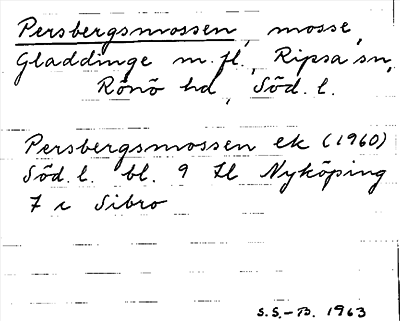 Persbergsmossen, mosse,
Gladdinge m.fl., Ripsa sn,
Rönö hd, Söd. l.
Persbergsmossen ek (1960)
Söd. l. bl. 9 Il Nyköping
7 c Sibro
S.S.-B. 1963